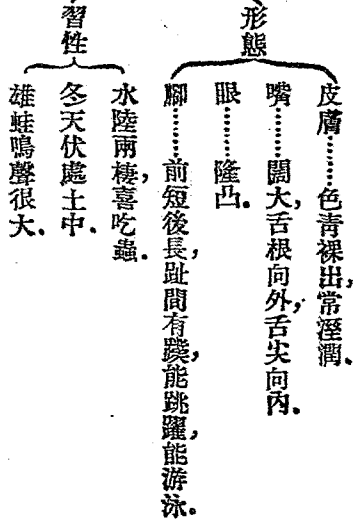 形態
皮膚……色青裸出，常溼潤．
嘴………闊大，舌根向外，舌尖向內．
眼………隆凸．
腳………前短後長，趾間有蹼，能跳躍，能游泳．
習性
水陸兩棲，喜吃蟲．
冬天伏處土中．
雄蛙鳴聲很大．